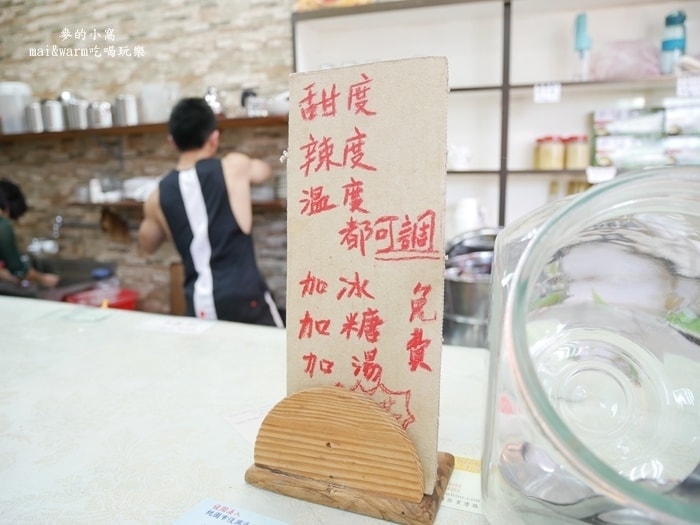 麥的小窩
mai&warm吃喝玩樂
甜度
辣度
溫度
都可調
加冰
加糖
加湯
免費